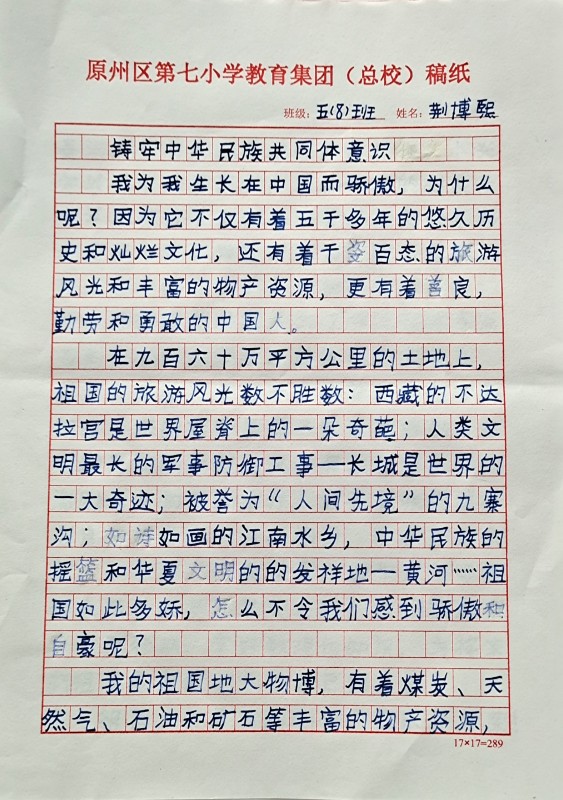 原州区第七小学教育集团（总校）稿纸
班级：五(8)班 姓名：荆博熙
铸牢中华民族共同体意识
我为我生长在中国而骄傲，为什么
呢？因为它不仅有着五千多年的悠久历
史和灿烂文化，还有着千姿百态的旅游
风光和丰富的物产资源，更有着善良，
勤劳和勇敢的中国人。
在九百六十万平方公里的土地上，
祖国的旅游风光数不胜数：西藏的不达
拉宫是世界屋脊上的一朵奇葩；人类文
明最长的军事防御工事——长城是世界的
一大奇迹；被誉为“人间先境”的九寨
沟；如诗如画的江南水乡，中华民族的
摇篮和华夏文明的的发祥地—黄河……祖
国如此多娇，怎么不令我们感到骄傲和
自豪呢？
我的祖国地大物博，有着煤炭、天
然气、石油和矿石等丰富的物产资源，
17×17=289